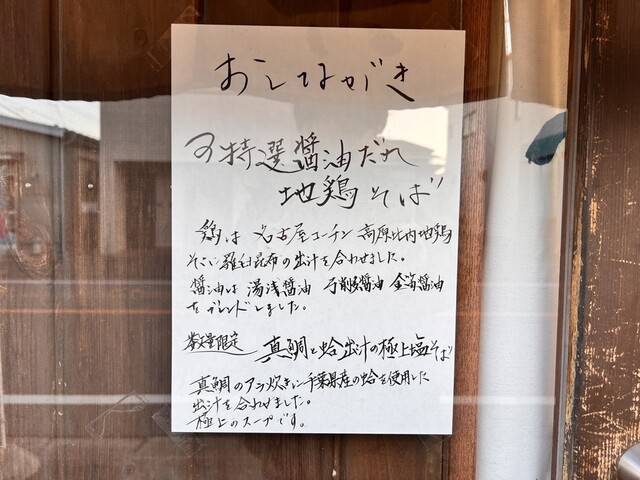 おしながき
特選醤油だれ
地鶏そば
鶏は 名古屋コーチン 高原比内地鶏
そこに羅臼昆布の出汁を合わせました。
醤油は 湯浅醤油 弓削醤油 金笛醤油
をブレンドしました。
数量限定 真鯛と蛤出汁の極上塩そば
真鯛のアラ炊きに千葉県産の蛤を使用した
出汁を合わせました。
極上のスープです。